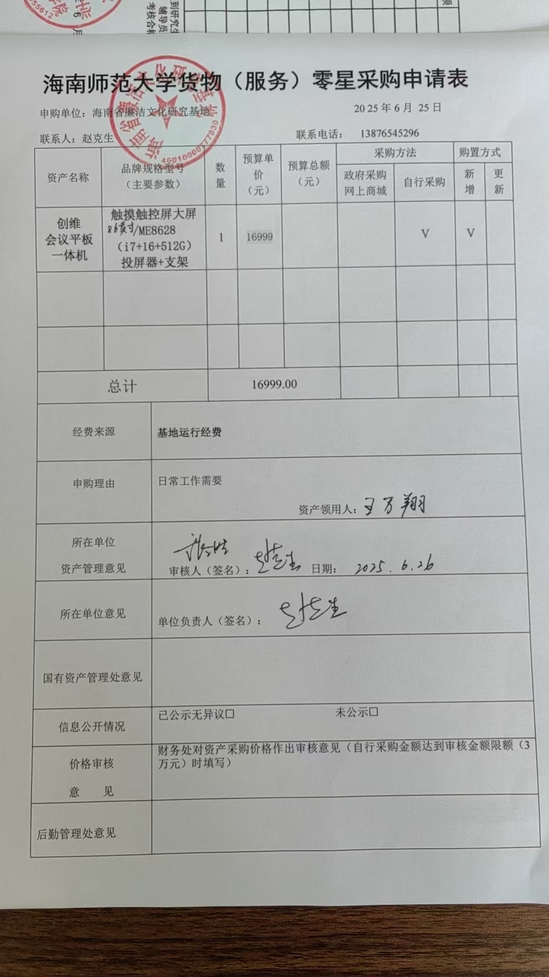 到研究生
辅导员
考核合格
海南师范大学货物（服务）零星采购申请表
申购单位：海南省廉洁文化研究基地
2025年6月25日
联系人：赵克生
联系电话：13876545296
资产名称
品牌规格型号
（主要参数）
数量
预算单价
（元）
预算总额
（元）
采购方法
购置方式
政府采购
网上商城
自行采购
新增
更新
创维
会议平板
一体机
触摸触控屏大屏
86英寸/ME8628
（i7+16+512G）
投屏器+支架
1
16999
V
V
总计
16999.00
经费来源
基地运行经费
申购理由
日常工作需要
资产领用人：王万翔
所在单位
资产管理意见
审核人（签名）：赵克生 日期：2025.6.26
所在单位意见
单位负责人（签名）：赵克生
国有资产管理处意见
信息公开情况
已公示无异议☐
未公示☐
价格审核
意 见
财务处对资产采购价格作出审核意见（自行采购金额达到审核金额限额（3
万元）时填写）
后勤管理处意见